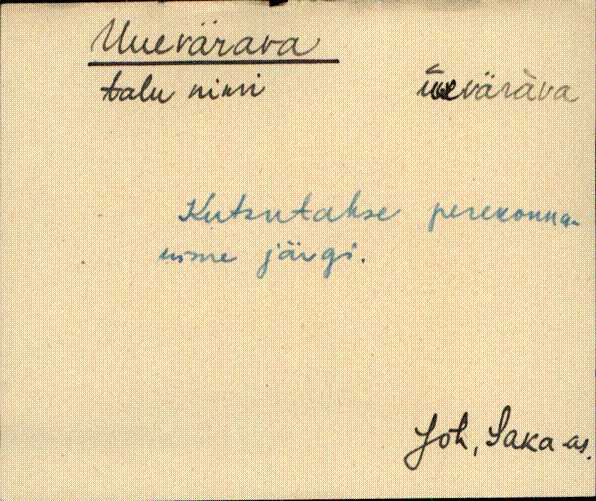 Uuevärava
talu nimi üevärava
Kutsutakse perekonna-
nime järgi.
Jõh, Saka as.